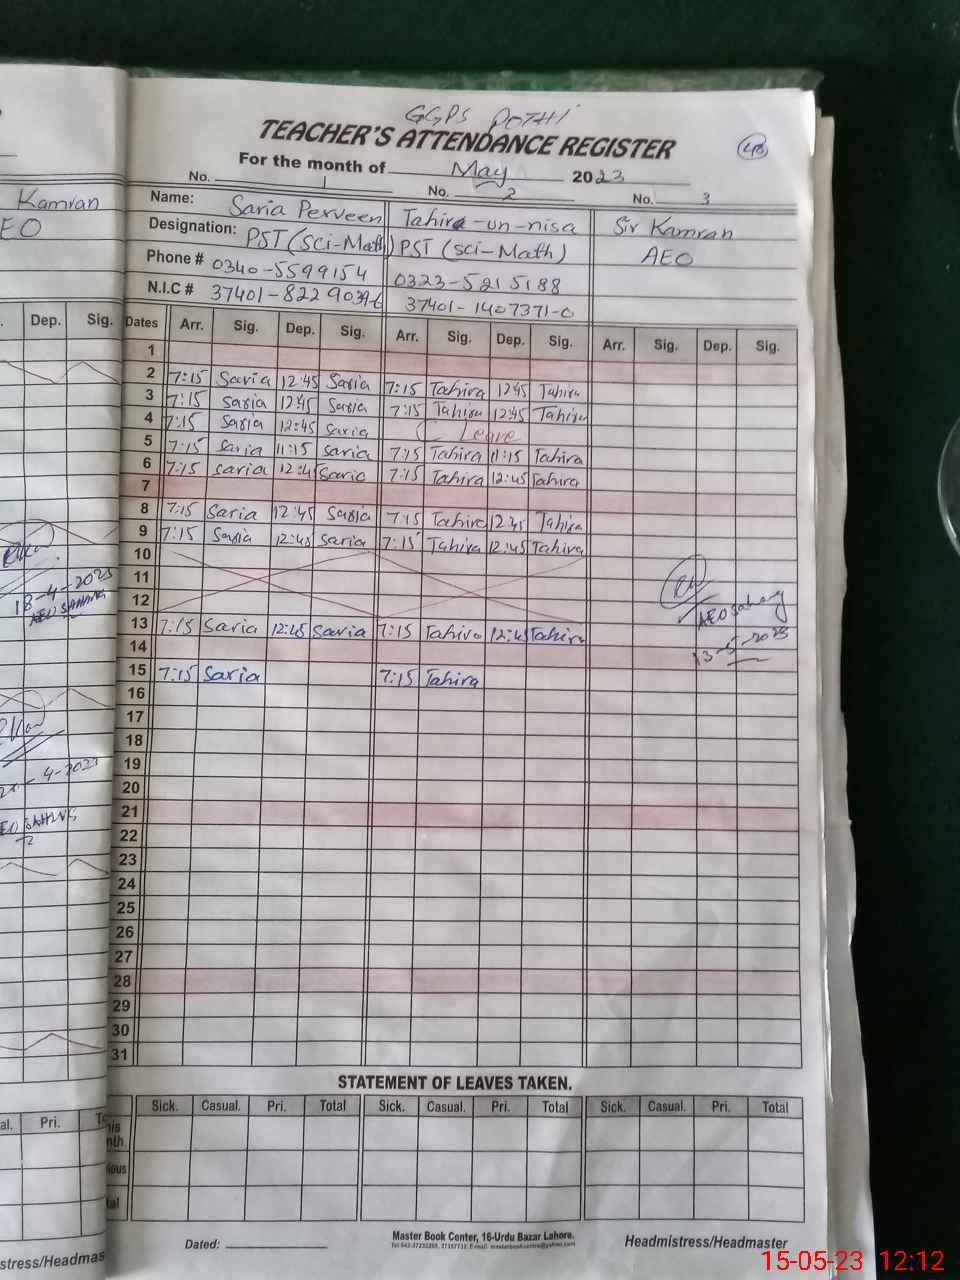 GGPS POTHI
TEACHER'S ATTENDANCE REGISTER
48
For the month of May 2023
No. 1 No. 2 No. 3
Name: Saria Perveen Tahira-un-nisa Sir Kamran
Designation: PST (Sci-Math) PST (sci-Math) AEO
Phone # 0340-5599154 0323-5215188
N.I.C # 37401-8229039-6 37401-1407371-0
Dates Arr. Sig. Dep. Sig. Arr. Sig. Dep. Sig. Arr. Sig. Dep. Sig.
1
2 7:15 Saria 12:45 Saria 7:15 Tahira 12:45 Tahira
3 7:15 saria 12:45 Saria 7:15 Tahira 12:45 Tahira
4 7:15 saria 12:45 saria C Leave
5 7:15 saria 11:15 saria 7:15 Tahira 11:15 Tahira
6 7:15 saria 12:45 Saria 7:15 Tahira 12:45 Tahira
7
8 7:15 Saria 12:45 Saria 7:15 Tahira 12:45 Tahira
9 7:15 Saria 12:45 saria 7:15 Tahira 12:45 Tahira
10
11
12
AEO Sahang
13 7:15 Saria 12:45 Saria 7:15 Tahira 12:45 Tahira
13-5-2023
14
15 7:15 Saria 7:15 Tahira
16
17
18
19
20
21
22
23
24
25
26
27
28
29
30
31
STATEMENT OF LEAVES TAKEN.
Sick. Casual. Pri. Total Sick. Casual. Pri. Total Sick. Casual. Pri. Total
Dated:
Master Book Center, 16-Urdu Bazar Lahore.
Headmistress/Headmaster
Kamran
EO
Dep. Sig.
18-4-2023
AEO SAHANG
4-2023
AEO SAHANG
al. Pri.
stress/Headmas
15-05-23 12:12